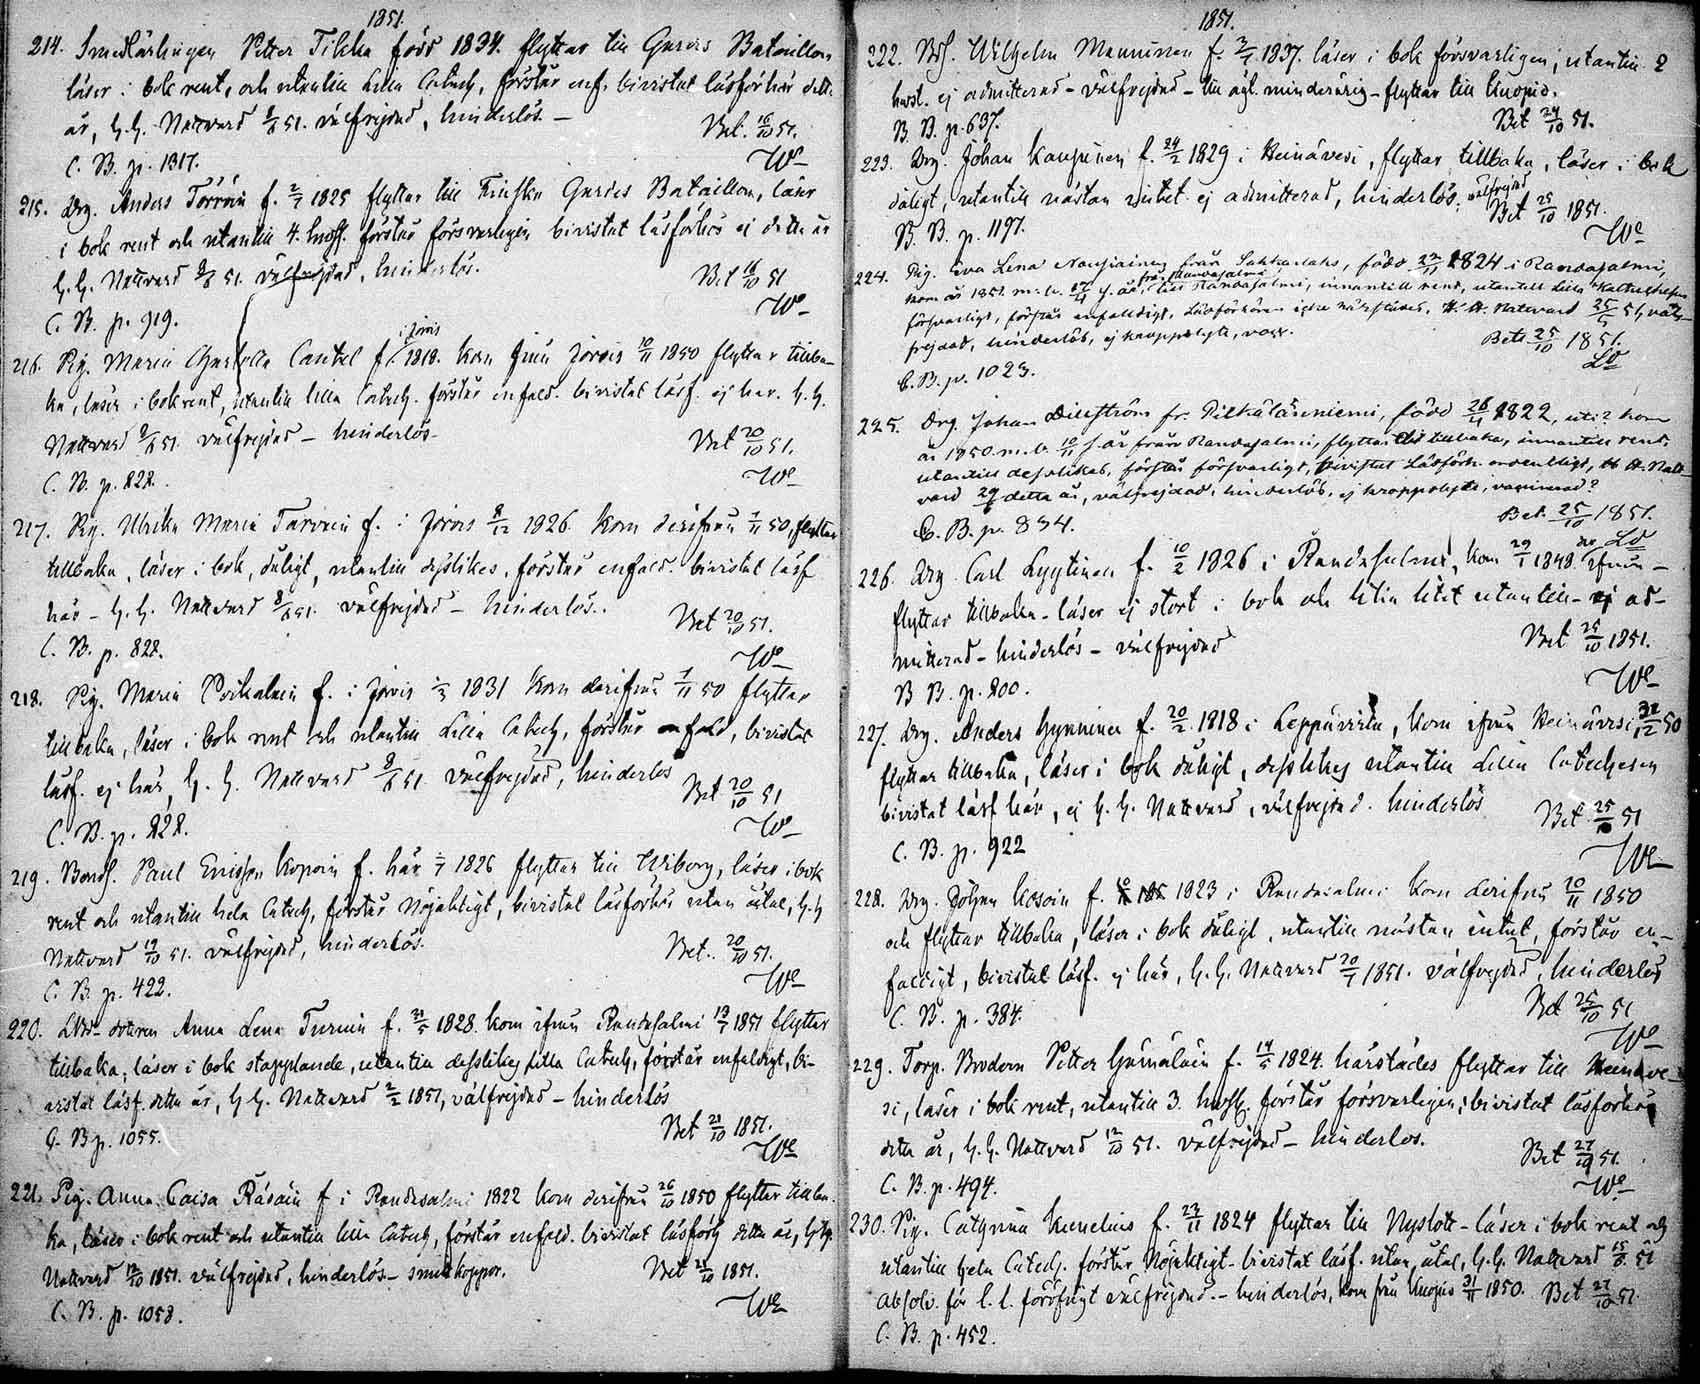 1851.
214. Smedlärlingen Petter Tikka född 1834. flyttar till Gardes Bataillon
läser i bok rent, och utantill Lilla Catech, förstår enf. bivistat läsförhör detta
år, H.H. Nattvard 51. välfrejdad, hinderlös. —
Bet. 16/10 51.
C. B. p. 1317.
We
215. Drg. Anders f. 2/7 1825 flyttar till Finska Gardes Bataillon, läser
i bok rent och utantill 4. hufst. förstår försvarligen bivistat läsförhör ej detta år
H.H. Nattvard 51. välfrejdad, hinderlös.
Bet 16/10 51
C. B. p. 919.
We
i Jorois
216. Pig. Maria Castel f. 1818. kom ifrån Jorois 10/11 1850 flyttar tillba-
ka, läser i bok rent, utantill lilla Catech. förstår enfald. bivistat läsf. ej här. H.H.
Nattvard 51. välfrejdad — hinderlös.
Bet 20/10 51.
C. B. p. 828.
We
217. Pig. Ulrika Maria Tarvain f. i Jorois 8/12 1826. kom derifrån 50, flyttar
tillbaka, läser i bok, dåligt, utantill desslikes, förstår enfald. bivistat läsf
här — H.H. Nattvard 51. välfrejdad — hinderlös.
Bet 20/10 51.
C. B. p. 828.
We
218. Pig. Maria f. i Jorois 1831 kom derifrån 50 flyttar
tillbaka, läser i bok rent och utantill Lilla Catech, förstår enfald, bivistat
läsf. ej här, H.H. Nattvard 51 välfrejdad, hinderlös
Bet 20/10 51
C. B. p. 828.
We
219. Bonds. Paul Ericsson Kopoin f. här 1826 flyttar till Wiborg, läser i bok
rent och utantill hela Catech, förstår Nöjaktigt, bivistat läsförhör utan åtal, H.H
Nattvard 19/10 51. välfrejdad, hinderlös.
Bet. 20/10 51.
C. B. p. 422.
We
220. dottren Anna Lena Turuin f. 21/5 1828. kom ifrån Randasalmi 13/7 1851 flyttar
tillbaka, läser i bok stapplande, utantill desslikes lilla Catech, förstår enfaldigt, bi-
vistat läsf. detta år, H.H. Nattvard 2/2 1851, välfrejdad — hinderlös
Bet 21/10 1851.
C. B p. 1055.
We
221. Pig. Anna Caisa Räsäin f i Randasalmi 1822 kom derifrån 1850 flyttar tillba-
ka, läser i bok rent och utantill lilla Catech, förstår enfald. bivistat läsförh detta år, H.H.
Nattvard 12/10 1851. välfrejdad, hinderlös — smittkoppor.
Bet 21/10 1851.
C. B. p. 1058.
We
1851.
222. Bds. Wilhelm Manninen f. 1837. läser i bok försvarligen, utantill 2
hufst. ej admitterad — välfrejdad — till ägt. minderårig — flyttar till Kuopio.
B. B. p. 637.
Bet 24/10 51.
223. Drg. Johan Kaupinen f. 24/2 1829 i Heinävesi, flyttar tillbaka, läser i bok
dåligt, utantill nästan intet. ej admitterad, hinderlös. välfrejdad
Bet 25/10 1851.
B. B. p. 1197.
We
224. Pig. Eva Lena från född 22/11 1824 i Randasalmi,
från Randasalmi
kom år 1851 m. b. till Randasalmi, innantill rent, utantill Lilla Katechesen
försvarligt, förstår enfaldigt, Läsförhören icke H. H. Nattvard 25/5 51, väl-
frejdad, hinderlös, ej kroppslyte, vacc.
Bets 25/10 1851.
C. B. p. 1023.
225. Drg. Johan Dillström fr. född 26/4 1822, uti? kom
år 1850 m. b. 10/11 s. år från Randasalmi, flyttar tillbaka, innantill rent,
utantill desslikes, förstår försvarligt, bivistat Läsförh. ordentligt, H. H. Natt-
vard detta år, välfrejdad, hinderlös, ej kroppslyte, vaccinerad?
Bet. 25/10 1851.
C. B. p. 834.
226. Drg. Carl Lyytinen f. 10/2 1826 i Randasalmi, kom 1848. ifrån —
flyttar tillbaka — läser ej stort i bok och litet utantill — ej ad-
mitterad — hinderlös — välfrejdad
Bet 25/10 1851.
B B. p. 800.
We
227. Drg. Anders Hynninen f. 20/2 1818 i Leppävirta, kom ifrån Heinävesi 50
flyttar tillbaka, läser i bok dåligt, desslikes utantill Lilla Catechesen
bivistat läsf här, ej H.H. Nattvard, välfrejdad. hinderlös
Bet 25/10 51
C. B. p. 922
We
228. Drg. Johan Kosoin f. 1823 i Randasalmi kom derifrån 10/11 1850
och flyttar tillbaka, läser i bok dåligt, utantill nästan intet, förstår en-
faldigt, bivistat läsf. ej här, H.H. Nattvard 20/7 1851. välfrejdad, hinderlös
Bet 25/10 51
C. B. p. 384.
We
229. Torp. Brodern Petter Hämäläin f. 14/5 1824. härstädes flyttar till Heinäve-
si, läser i bok rent, utantill 3. hufst. förstår försvarligen, bivistat läsförhör
detta år, H.H. Nattvard 12/10 51. välfrejdad — hinderlös.
Bet 27/10 51.
C. B. p. 494.
We
230. Pig. Cathrina Kunelius f. 23/11 1824 flyttar till Nyslott — läser i bok rent och
utantill hela Catech. förstår Nöjaktigt — bivistat läsf. utan åtal, H.H. Nattvard 51
absolv. för l. l. föröfrigt välfrejdad. — hinderlös, kom från Kuopio 1850. Bet 27/10 51.
C. B. p. 452.